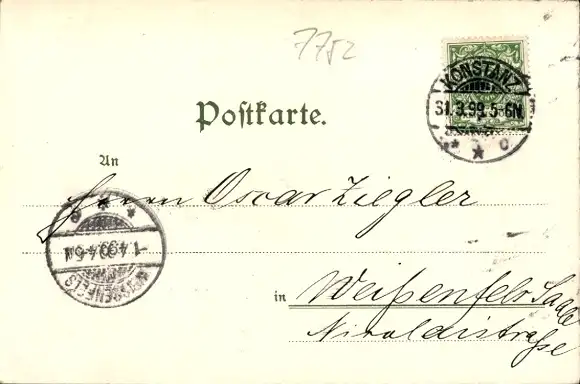 7752
KONSTANZ
31.3.99.5-6N
* c
Postkarte.
An
Herrn Oscar Ziegler
WEISSENFELS
-1.4.99.4-5
in Weißenfels Saale
Nicolaistraße